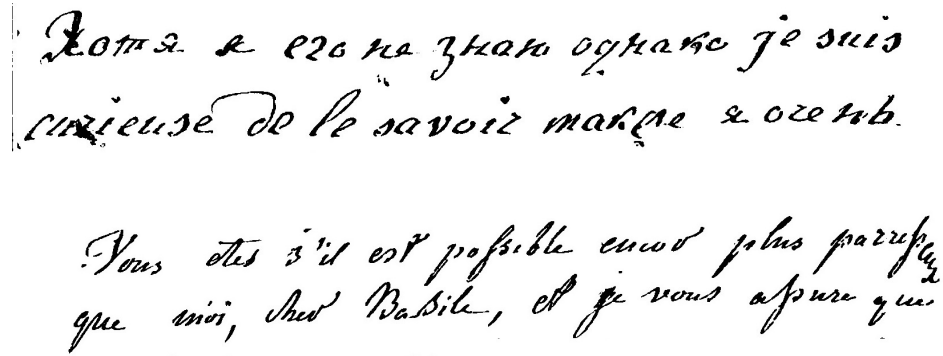 Хотя я его не знаю однако je suis
curieuse de le savoir также я очень.
Vous etes s'il est possible encor plus paresseux
que moi, cher Basile, et je vous assure que